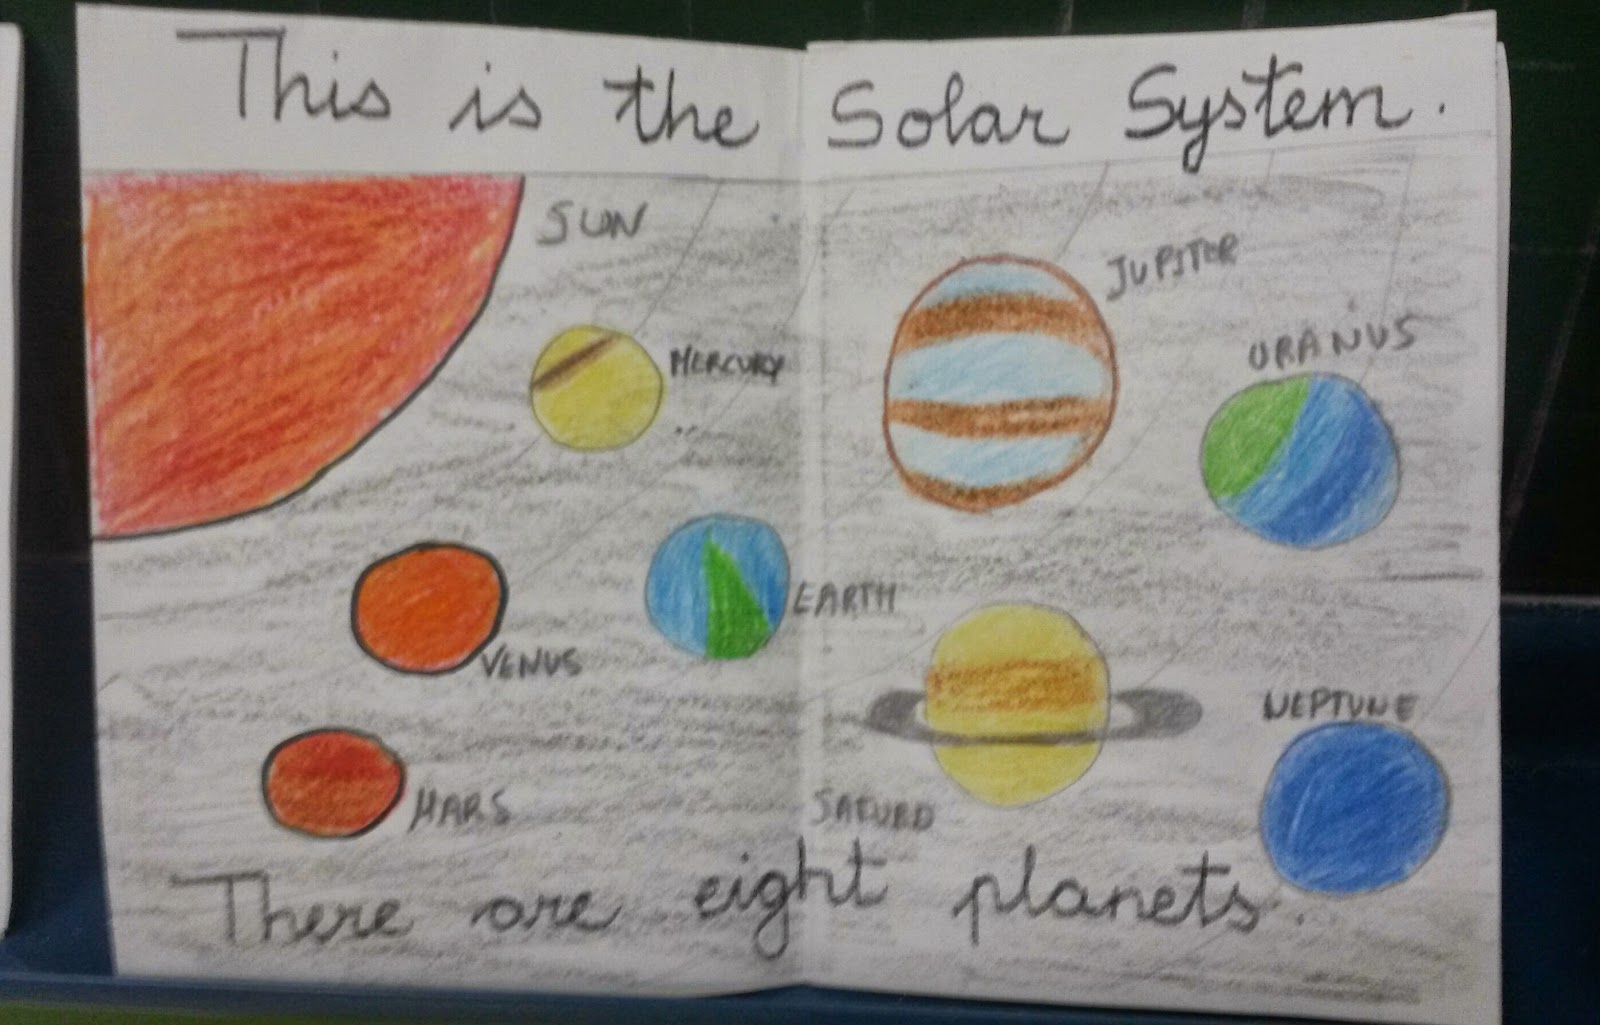 This is the Solar System.
SUN
MERCURY
JUPITER
URANUS
VENUS
EARTH
MARS
SATURD
NEPTUNE
There are eight planets.